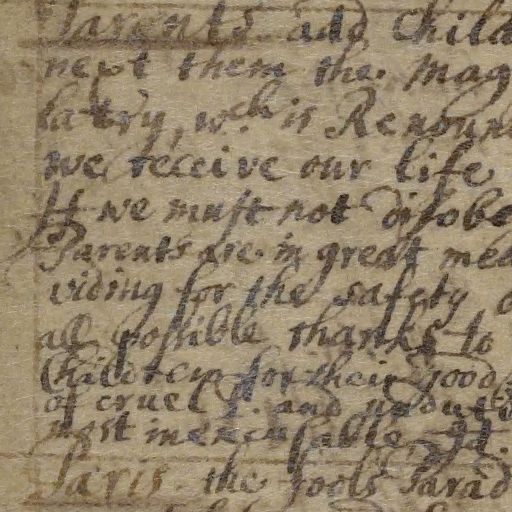 Parents add Child
next them the Mag
latry, wch is Renoun
we receive our life
If we must not disobe
Parents are in great mea
viding for the safety
all possible thanks to
Children for their good
of cruel and undut
most inexcusable Id.
Paris the fools Parad